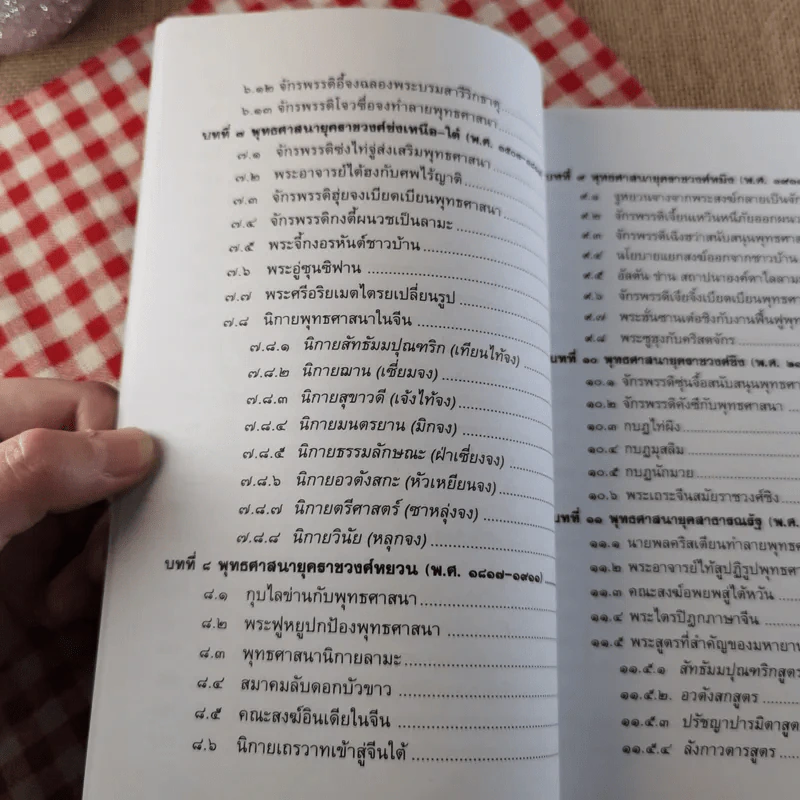 ๖.๑๒ จักรพรรดิอี้จงฉลองพระบรมสารีริกธาตุ
๖.๑๓ จักรพรรดิโจวซื่อจงทำลายพุทธศาสนา
บทที่ ๗ พุทธศาสนายุคราชวงศ์ซ่งเหนือ-ใต้ (พ.ศ.
๗.๑ จักรพรรดิซ่งไท่จู่ส่งเสริมพุทธศาสนา
๗.๒ พระอาจารย์ไต้ฮงกับศพไร้ญาติ
๗.๓ จักรพรรดิฮุ่ยจงเบียดเบียนพุทธศาสนา
๗.๔ จักรพรรดิกงตี้ผนวชเป็นลามะ
๗.๕ พระจี้กงอรหันต์ชาวบ้าน
๗.๖ พระอู่ซุนซิฟาน
๗.๗ พระศรีอริยเมตไตรยเปลี่ยนรูป
๗.๘ นิกายพุทธศาสนาในจีน
๗.๘.๑ นิกายสัทธัมมปุณฑริก (เทียนไท้จง)
๗.๘.๒ นิกายฌาน (เซี่ยมจง)
๗.๘.๓ นิกายสุขาวดี (เจ้งโท่จง)
๗.๘.๔ นิกายมนตรยาน (มิกจง)
๗.๘.๕ นิกายธรรมลักษณะ (ฝ่าเซี่ยงจง)
๗.๘.๖ นิกายอวตังสกะ (หัวเหยียนจง)
๗.๘.๗ นิกายตรีศาสตร์ (ซาหลุ่งจง)
๗.๘.๘ นิกายวินัย (หลุกจง)
บทที่ ๘ พุทธศาสนายุคราชวงศ์หยวน (พ.ศ. ๑๘๑๗-๑๙๑๑)
๘.๑ กุบไลข่านกับพุทธศาสนา
๘.๒ พระฟูหยูปกป้องพุทธศาสนา
๘.๓ พุทธศาสนานิกายลามะ
๘.๔ สมาคมลับดอกบัวขาว
๘.๕ คณะสงฆ์อินเดียในจีน
๘.๖ นิกายเถรวาทเข้าสู่จีนใต้
บทที่ ๙ พุทธศาสนายุคราชวงศ์หมิง (พ.ศ.
๙.๑ จูหยวนจางจากพระสงฆ์กลายเป็นจักร
๙.๒ จักรพรรดิเจี้ยนเหวินหนีภัยออกผนวช
๙.๓ จักรพรรดิเฉิงซวาสนับสนุนพุทธศาส
๙.๔ นโยบายแยกสงฆ์ออกจากชาวบ้าน
๙.๕ อัลตัน ข่าน สถาปนาองค์ดาไลลามะ
๙.๖ จักรพรรดิเจียจิ้งเบียดเบียนพุทธศาส
๙.๗ พระฮั่นซานเต๋อชิงกับงานฟื้นฟูพุท
๙.๘ พระซูฮุงกับคริสตจักร
บทที่ ๑๐ พุทธศาสนายุคราชวงศ์ชิง (พ.ศ.
๑๐.๑ จักรพรรดิซุ่นจื้อสนับสนุนพุทธศาส
๑๐.๒ จักรพรรดิคังซีกับพุทธศาสนา
๑๐.๓ กบฏไท่ผิง
๑๐.๔ กบฏมุสลิม
๑๐.๕ กบฏนักมวย
๑๐.๖ พระเถระจีนสมัยราชวงศ์ชิง
บทที่ ๑๑ พุทธศาสนายุคสาธารณรัฐ (พ.ศ.
๑๑.๑ นายพลคริสเตียนทำลายพุทธ
๑๑.๒ พระอาจารย์ไท้สูปฏิรูปพุทธศา
๑๑.๓ คณะสงฆ์อพยพสู่ไต้หวัน
๑๑.๔ พระไตรปิฎกภาษาจีน
๑๑.๕ พระสูตรที่สำคัญของมหายาน
๑๑.๕.๑ สัทธัมมปุณฑริกสูตร
๑๑.๕.๒. อวตังสกสูตร
๑๑.๕.๓ ปรัชญาปารมิตาสูตร
๑๑.๕.๔ ลังกาวตารสูตร